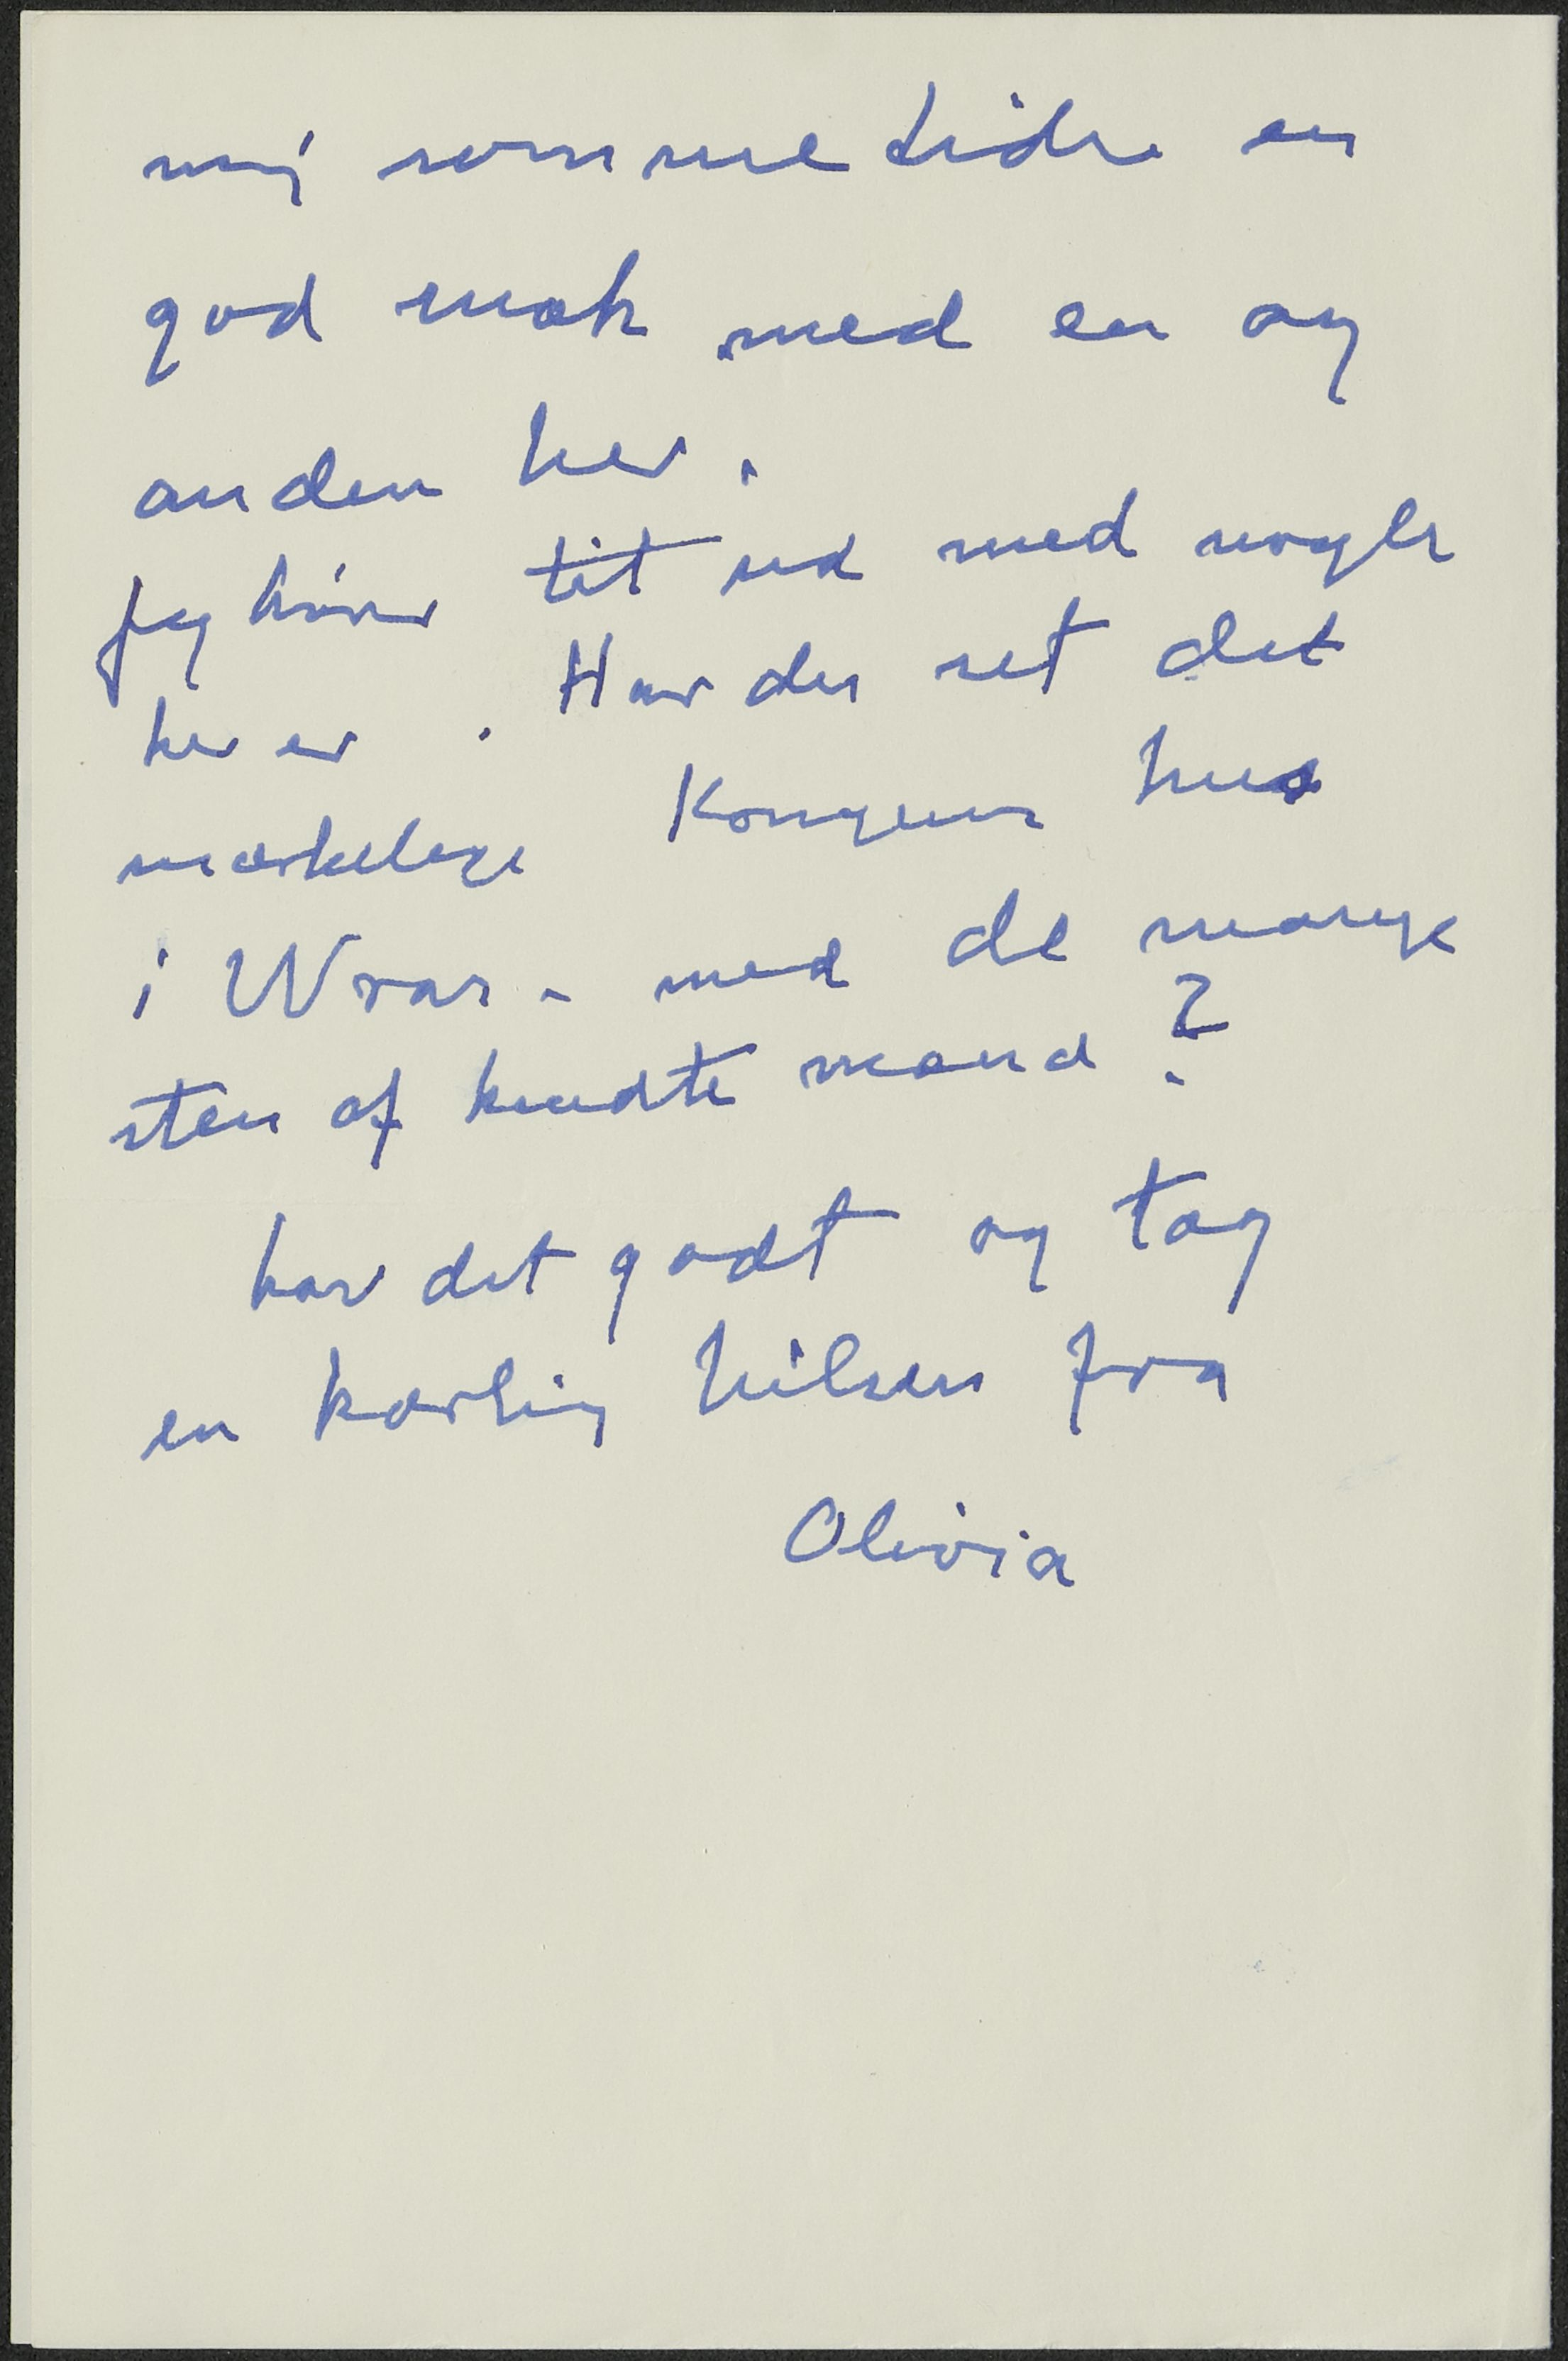 mig somme tider en
god snak med en og
anden her.
Jeg kører tit ud med nogle
her er. Har du set det
mærkelige Kongens hus
i Wrar - med de mange
sten af kendte mænd?
har det godt og tag
en kærlig hilsen fra
Olivia